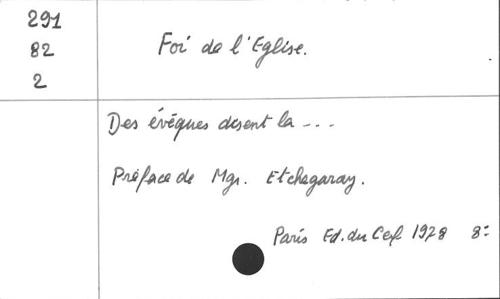 291
82
2
Foi de l'Eglise.
Des évêques disent la ...
Préface de Mgr. Etchegaray.
Paris Ed. du Cerf 1978 8: